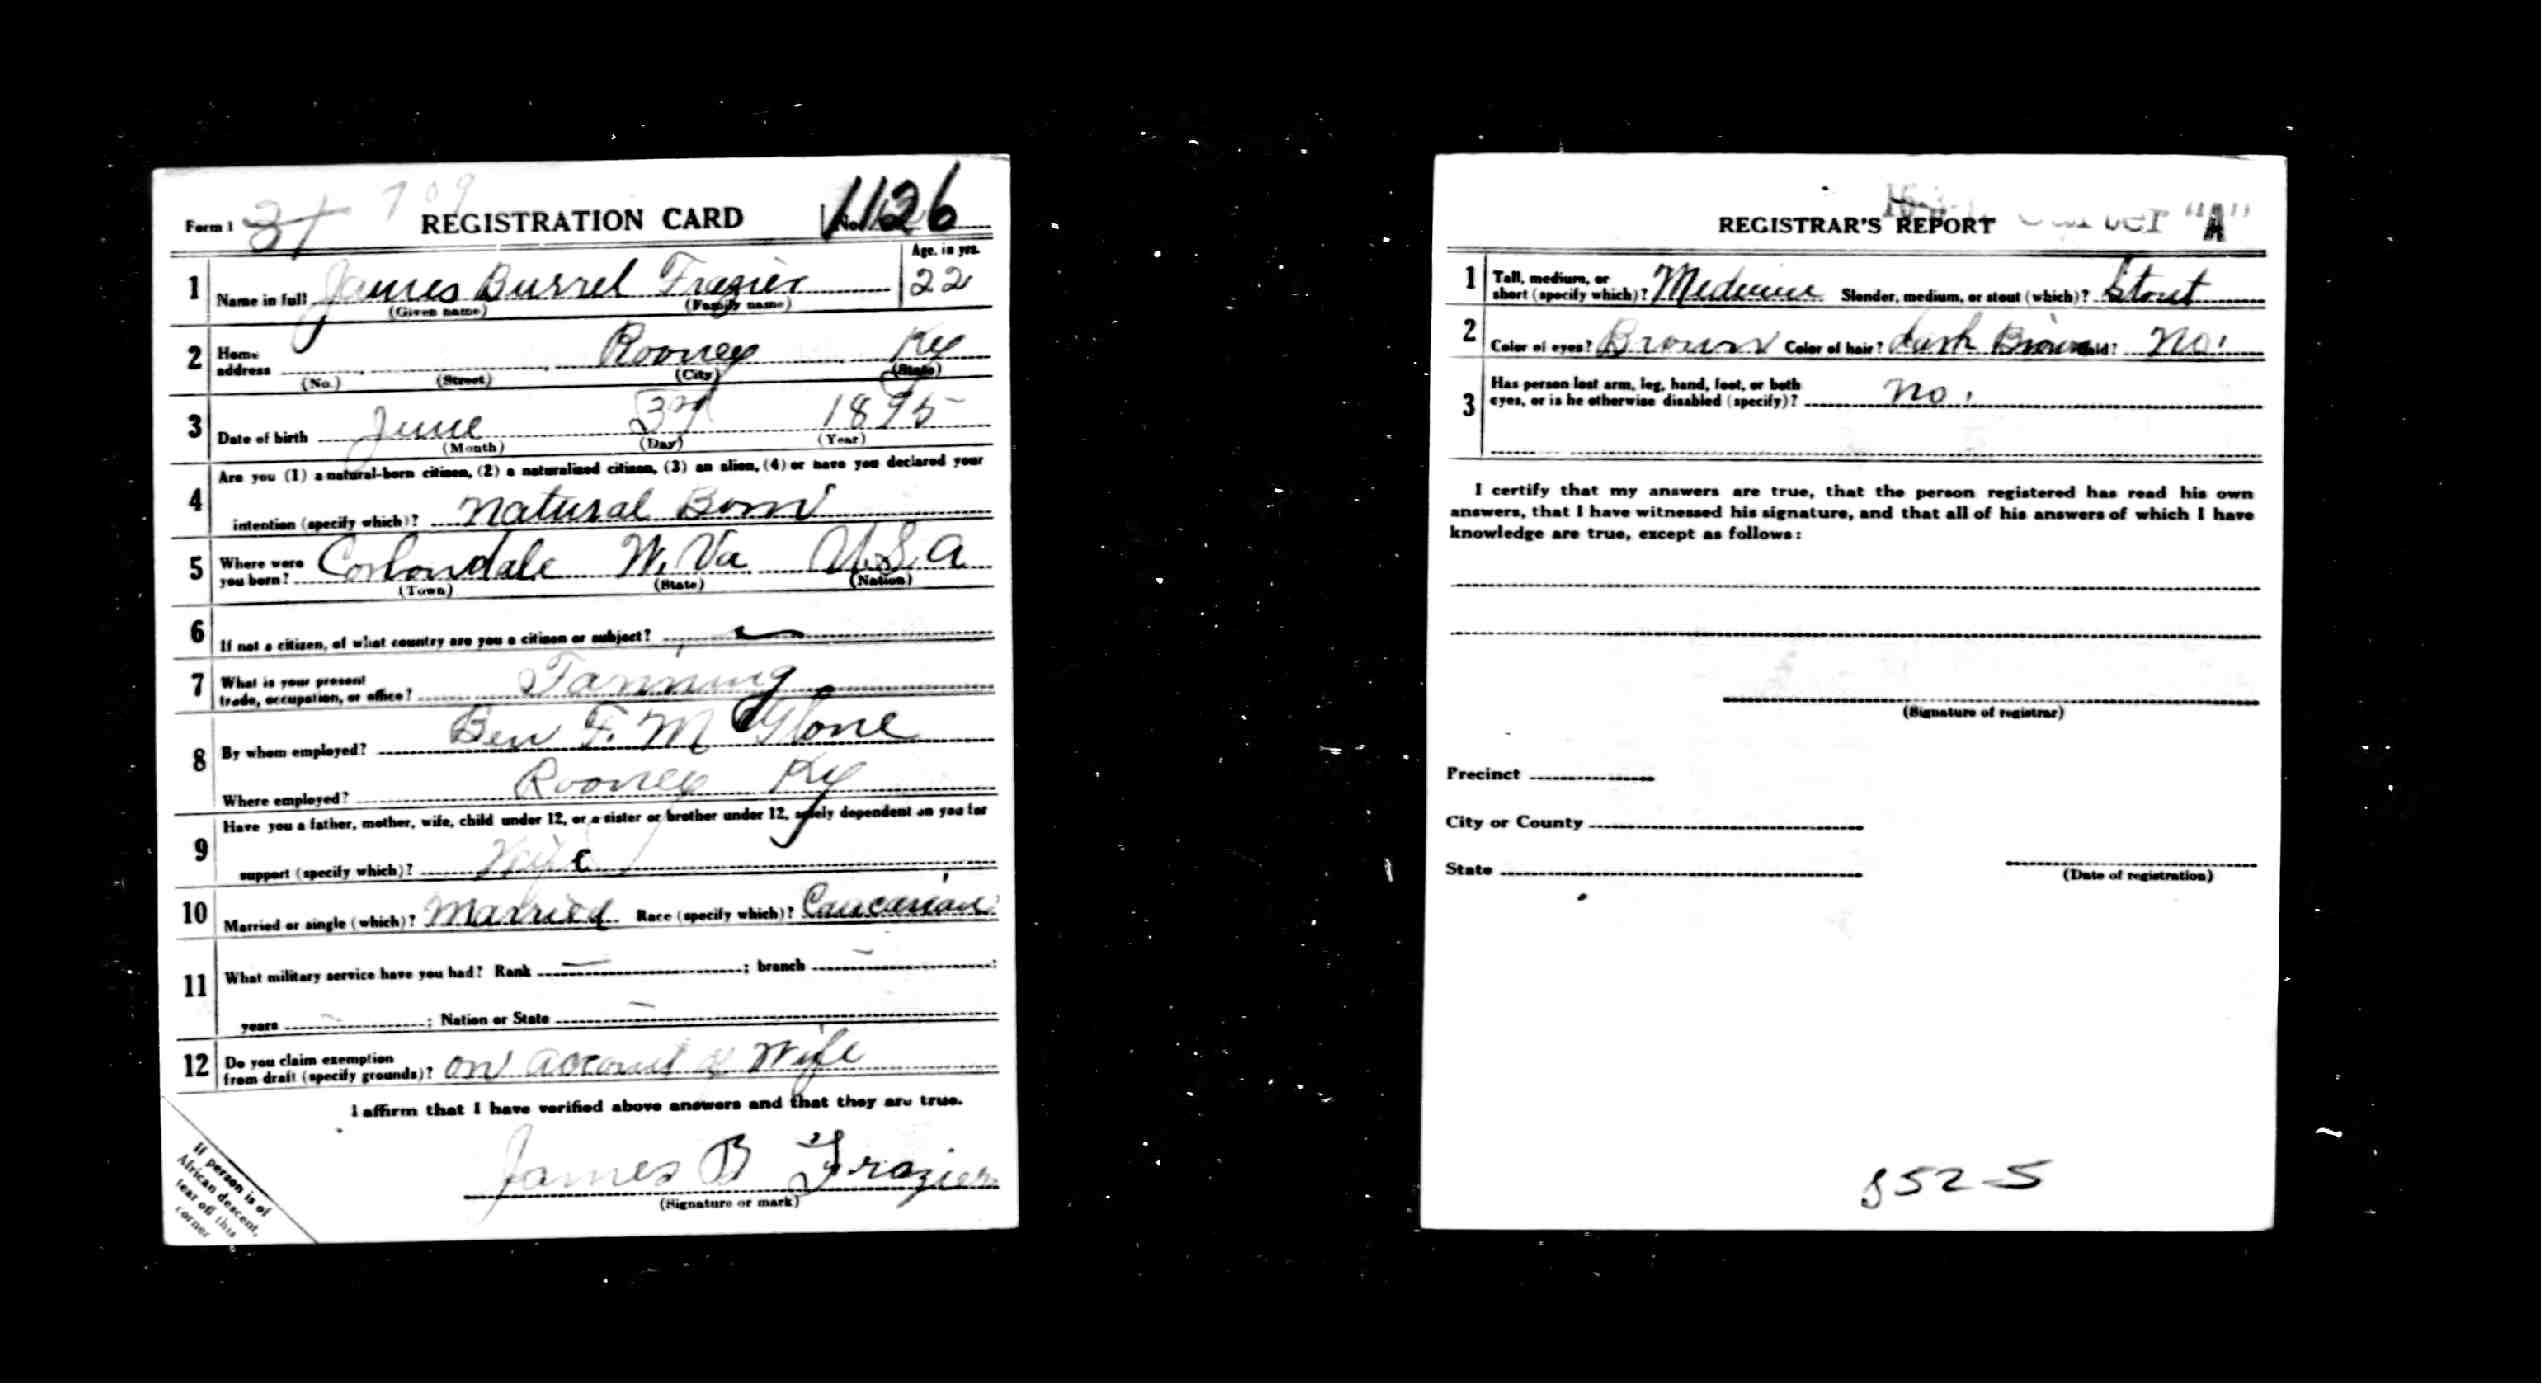 Form 1 31 709 REGISTRATION CARD No. 1126
1 Name in full James Burrel Frazier Age, in yrs. 22
(Given name) (Family name)
2 Home address Rooney Ky
(No.) (Street) (City) (State)
3 Date of birth June 3rd 1895
(Month) (Day) (Year)
4 Are you (1) a natural-born citizen, (2) a naturalized citizen, (3) an alien, (4) or have you declared your
intention (specify which)? Natural Born
5 Where were you born? Carbondale W. Va U.S.A
(Town) (State) (Nation)
6 If not a citizen, of what country are you a citizen or subject? —
7 What is your present
trade, occupation, or office?
8 By whom employed? Ben F. M Glone
Where employed? Rooney Ky
9 Have you a father, mother, wife, child under 12, or a sister or brother under 12, solely dependent on you for
support (specify which)? Wife
10 Married or single (which)? Married Race (specify which)? Caucasian
11 What military service have you had? Rank — ; branch — ;
years — ; Nation or State —
12 Do you claim exemption
from draft (specify grounds)? on account of Wife
I affirm that I have verified above answers and that they are true.
James B Frazier
(Signature or mark)
If person is of
African descent,
tear off this
corner
REGISTRAR'S REPORT "A"
1 Tall, medium, or
short (specify which)? Medium Slender, medium, or stout (which)? Stout
2 Color of eyes? Brown Color of hair? Dark Brown Bald? No.
3 Has person lost arm, leg, hand, foot, or both
eyes, or is he otherwise disabled (specify)? No.
I certify that my answers are true, that the person registered has read his own
answers, that I have witnessed his signature, and that all of his answers of which I have
knowledge are true, except as follows:
(Signature of registrar)
Precinct
City or County
State
(Date of registration)